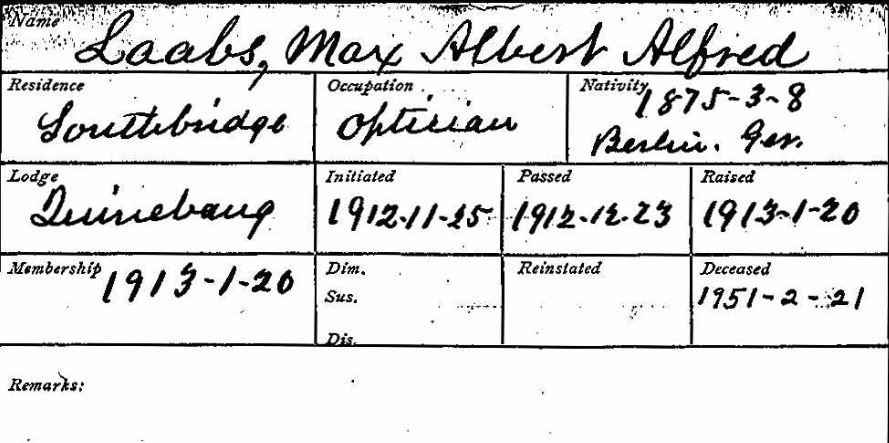 Name
Laabs, Max Albert Alfred
Residence Occupation Nativity
Southbridge Optician 1875-3-8
Berlin. Ger.
Lodge Initiated Passed Raised
Quinebaug 1912-11-25 1912-12-23 1913-1-20
Membership 1913-1-20 Dim. Reinstated Deceased
Sus. 1951-2-21
Dis.
Remarks: